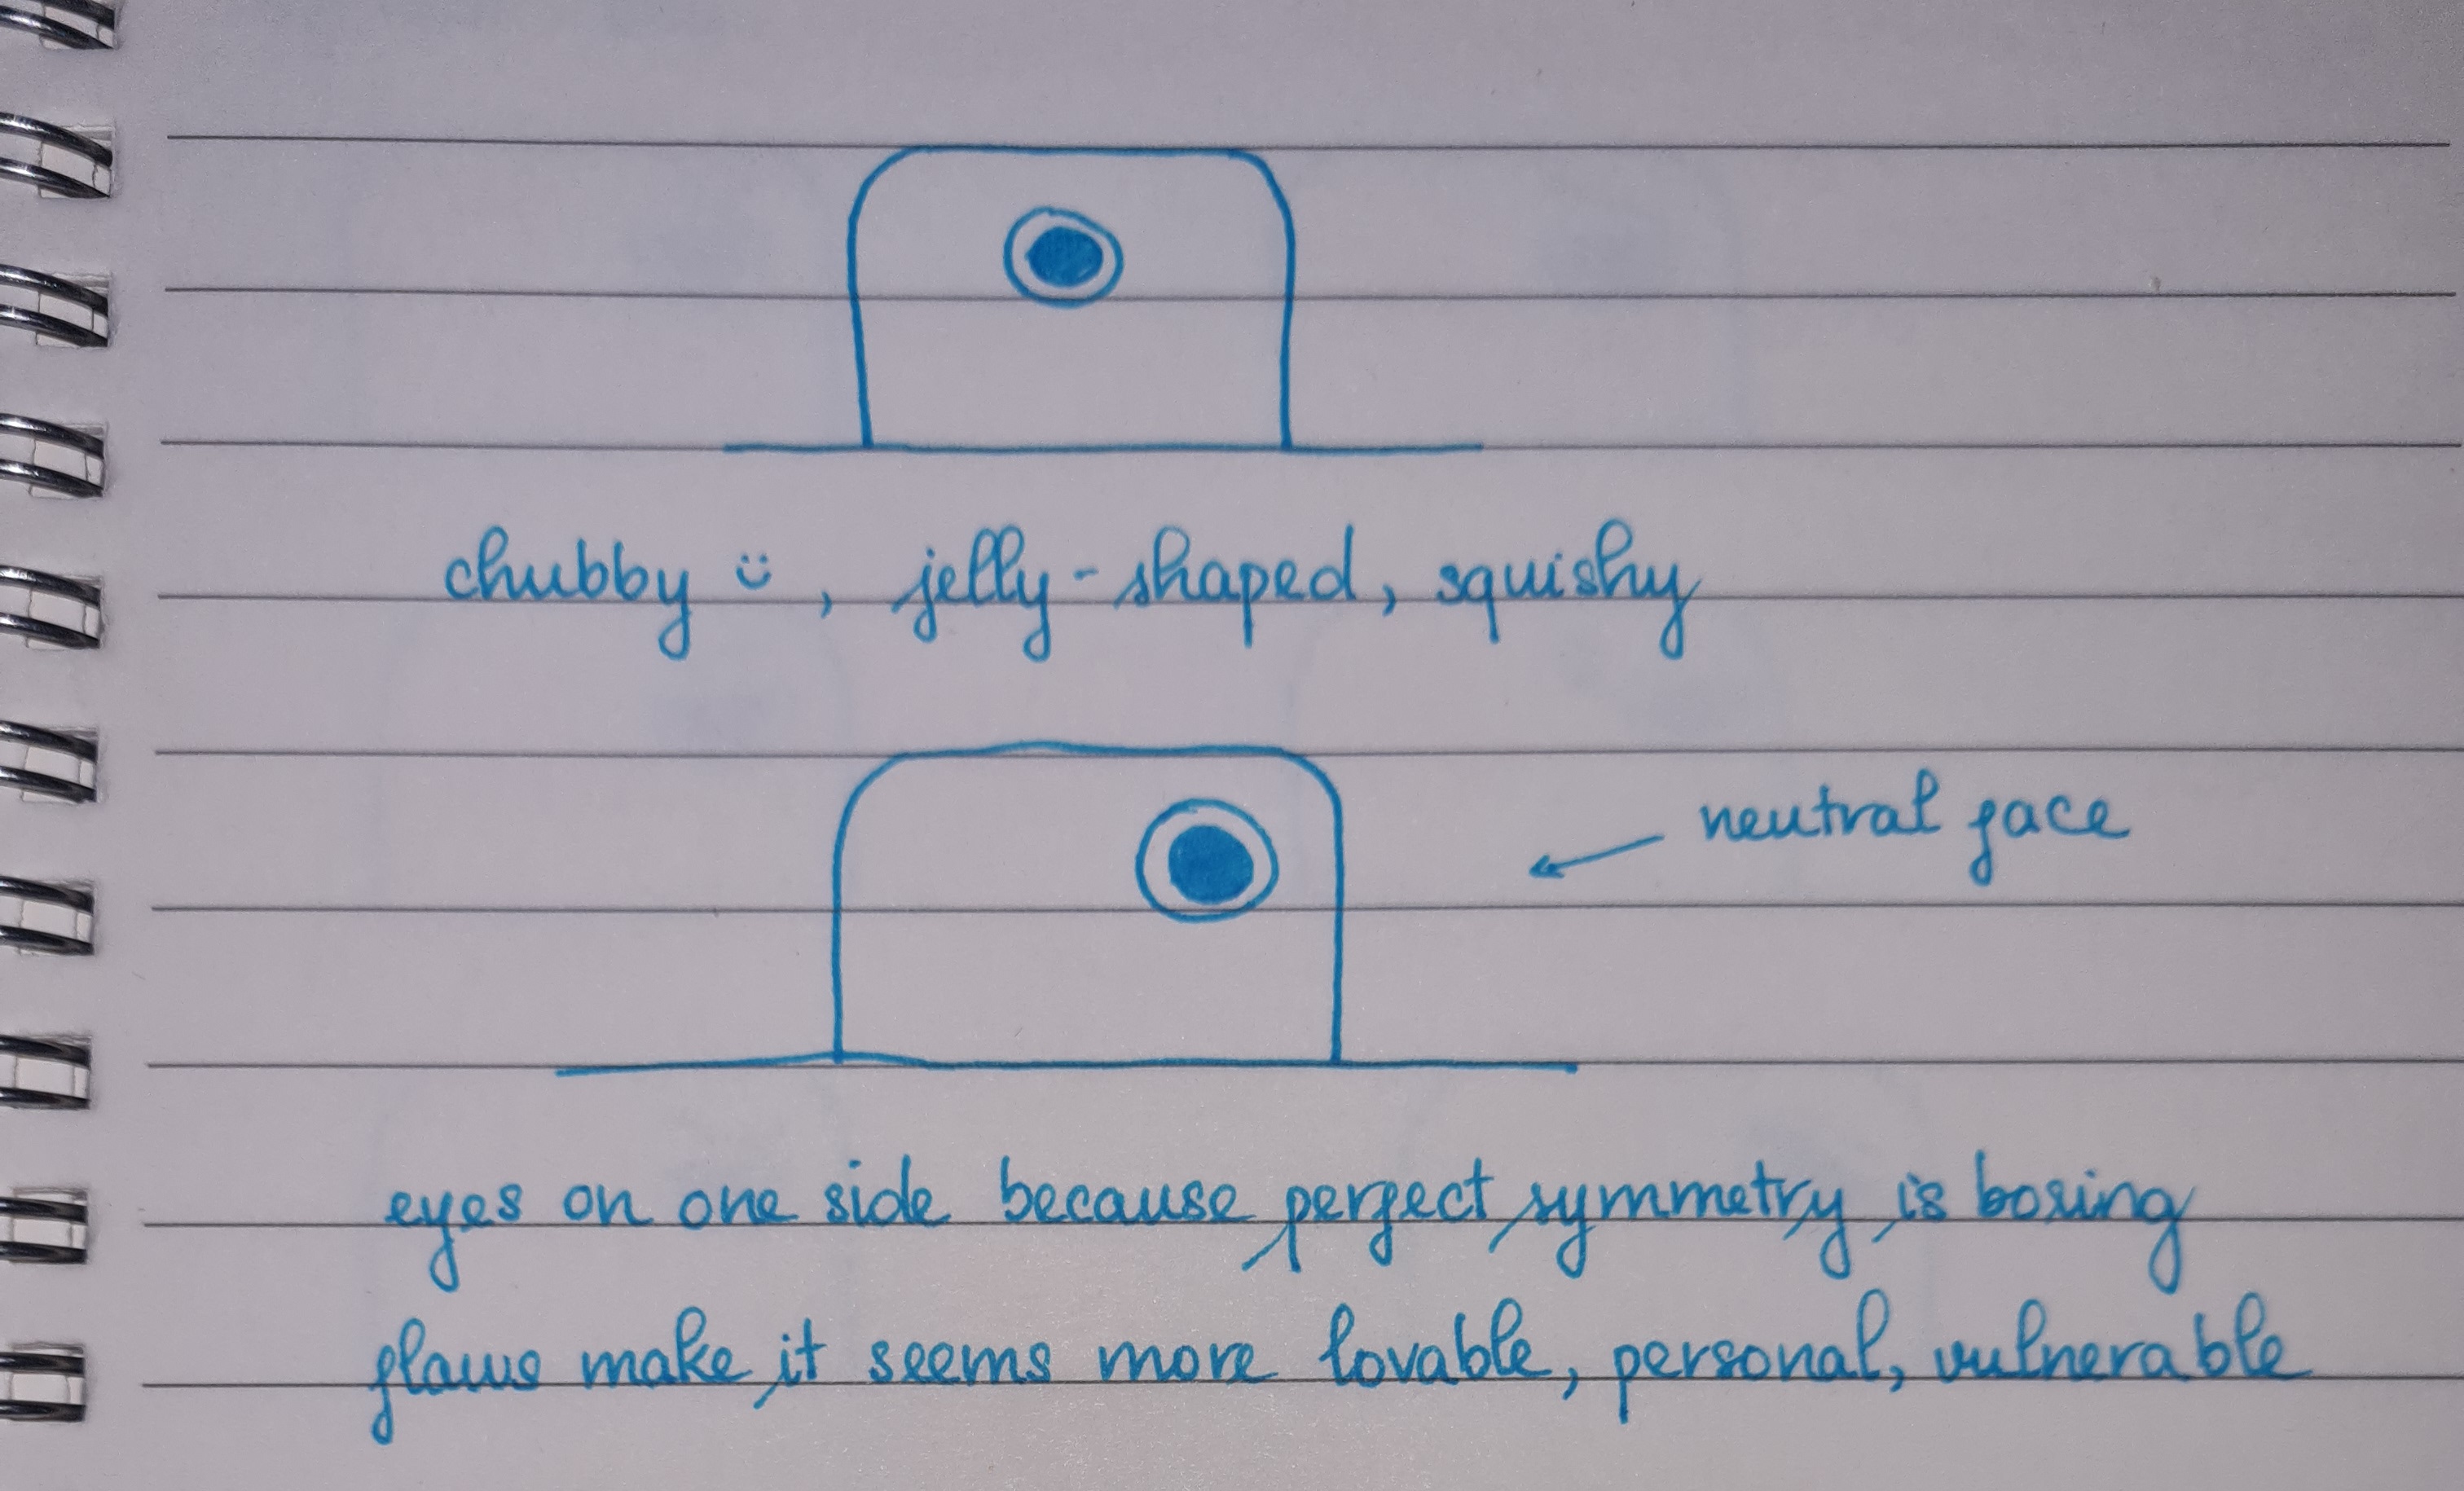 chubby ü, jelly-shaped, squishy
neutral face
eyes on one side because perfect symmetry is boring
flaws make it seems more lovable, personal, vulnerable